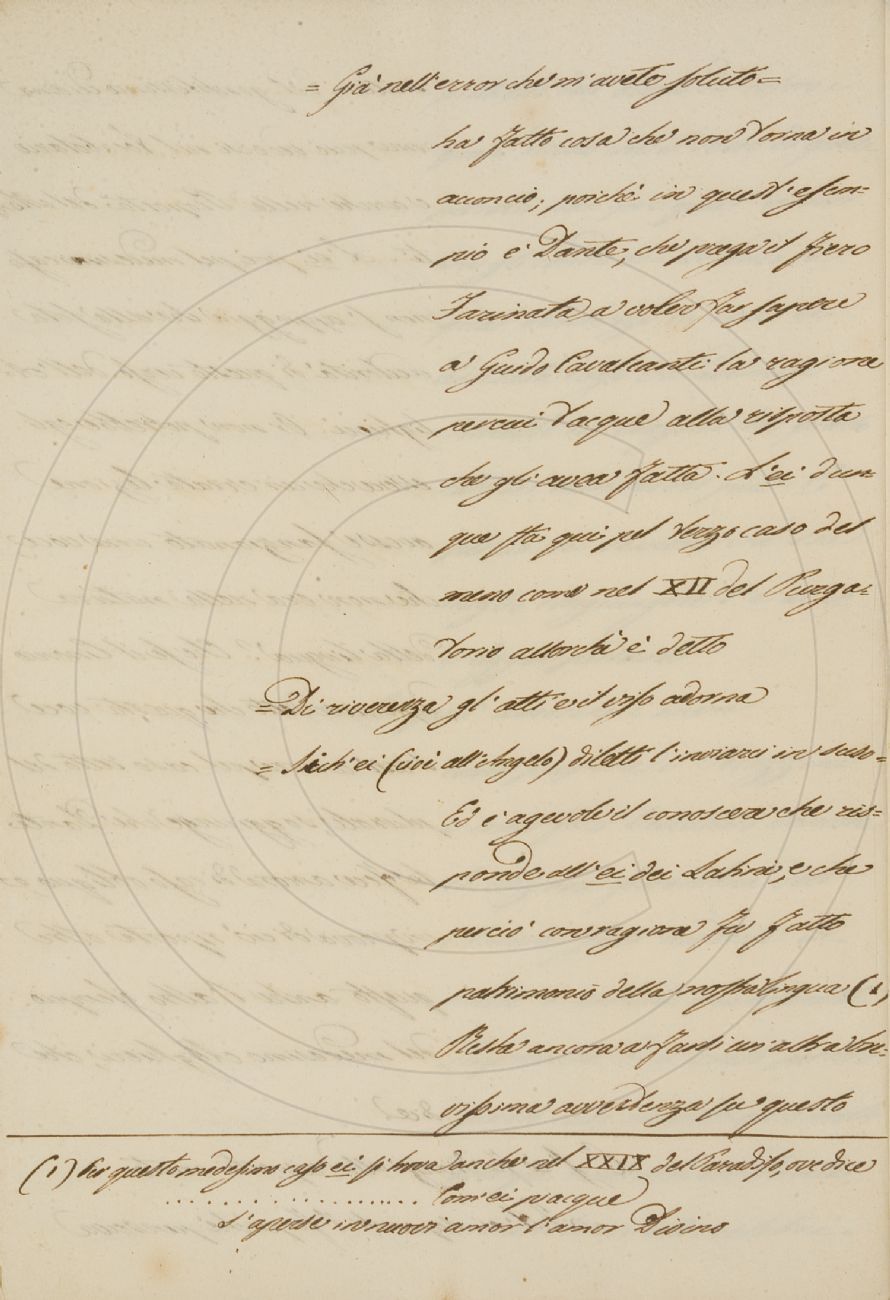 = Già nell'error che m'avete soluto =
ha fatto cosa che non torna in
acconcio; poichè in quest'esem-
pio è Dante, che prega il fiero
Farinata, a voler far sapere
a Guido Cavalcanti la ragione
per cui tacque alla risposta
che gli avea fatta. L'ei dun-
que sta qui pel terzo caso del
meno come nel XII del Purga-
torio allorchè è detto
= Di riverenza gl'atti e il viso adorna
= Sich'ei (cioè all'Angelo) diletti l'inviarci in suso =
Ed è agevole il conoscere che ris-
ponde all'ei dei Latini, e che
perciò con ragione fu fatto
patrimonio della nostra lingua (1)
Resta ancora a farsi un'altra bre-
vissima avvertenza su questo
(1) Per questo medesimo caso ei si trova anche nel XXIX del Paradiso, ove dice
. . . . . . . . . . . . . . . . . . Com'ei piacque
S'aperse in nuovi amor l'amor Divino